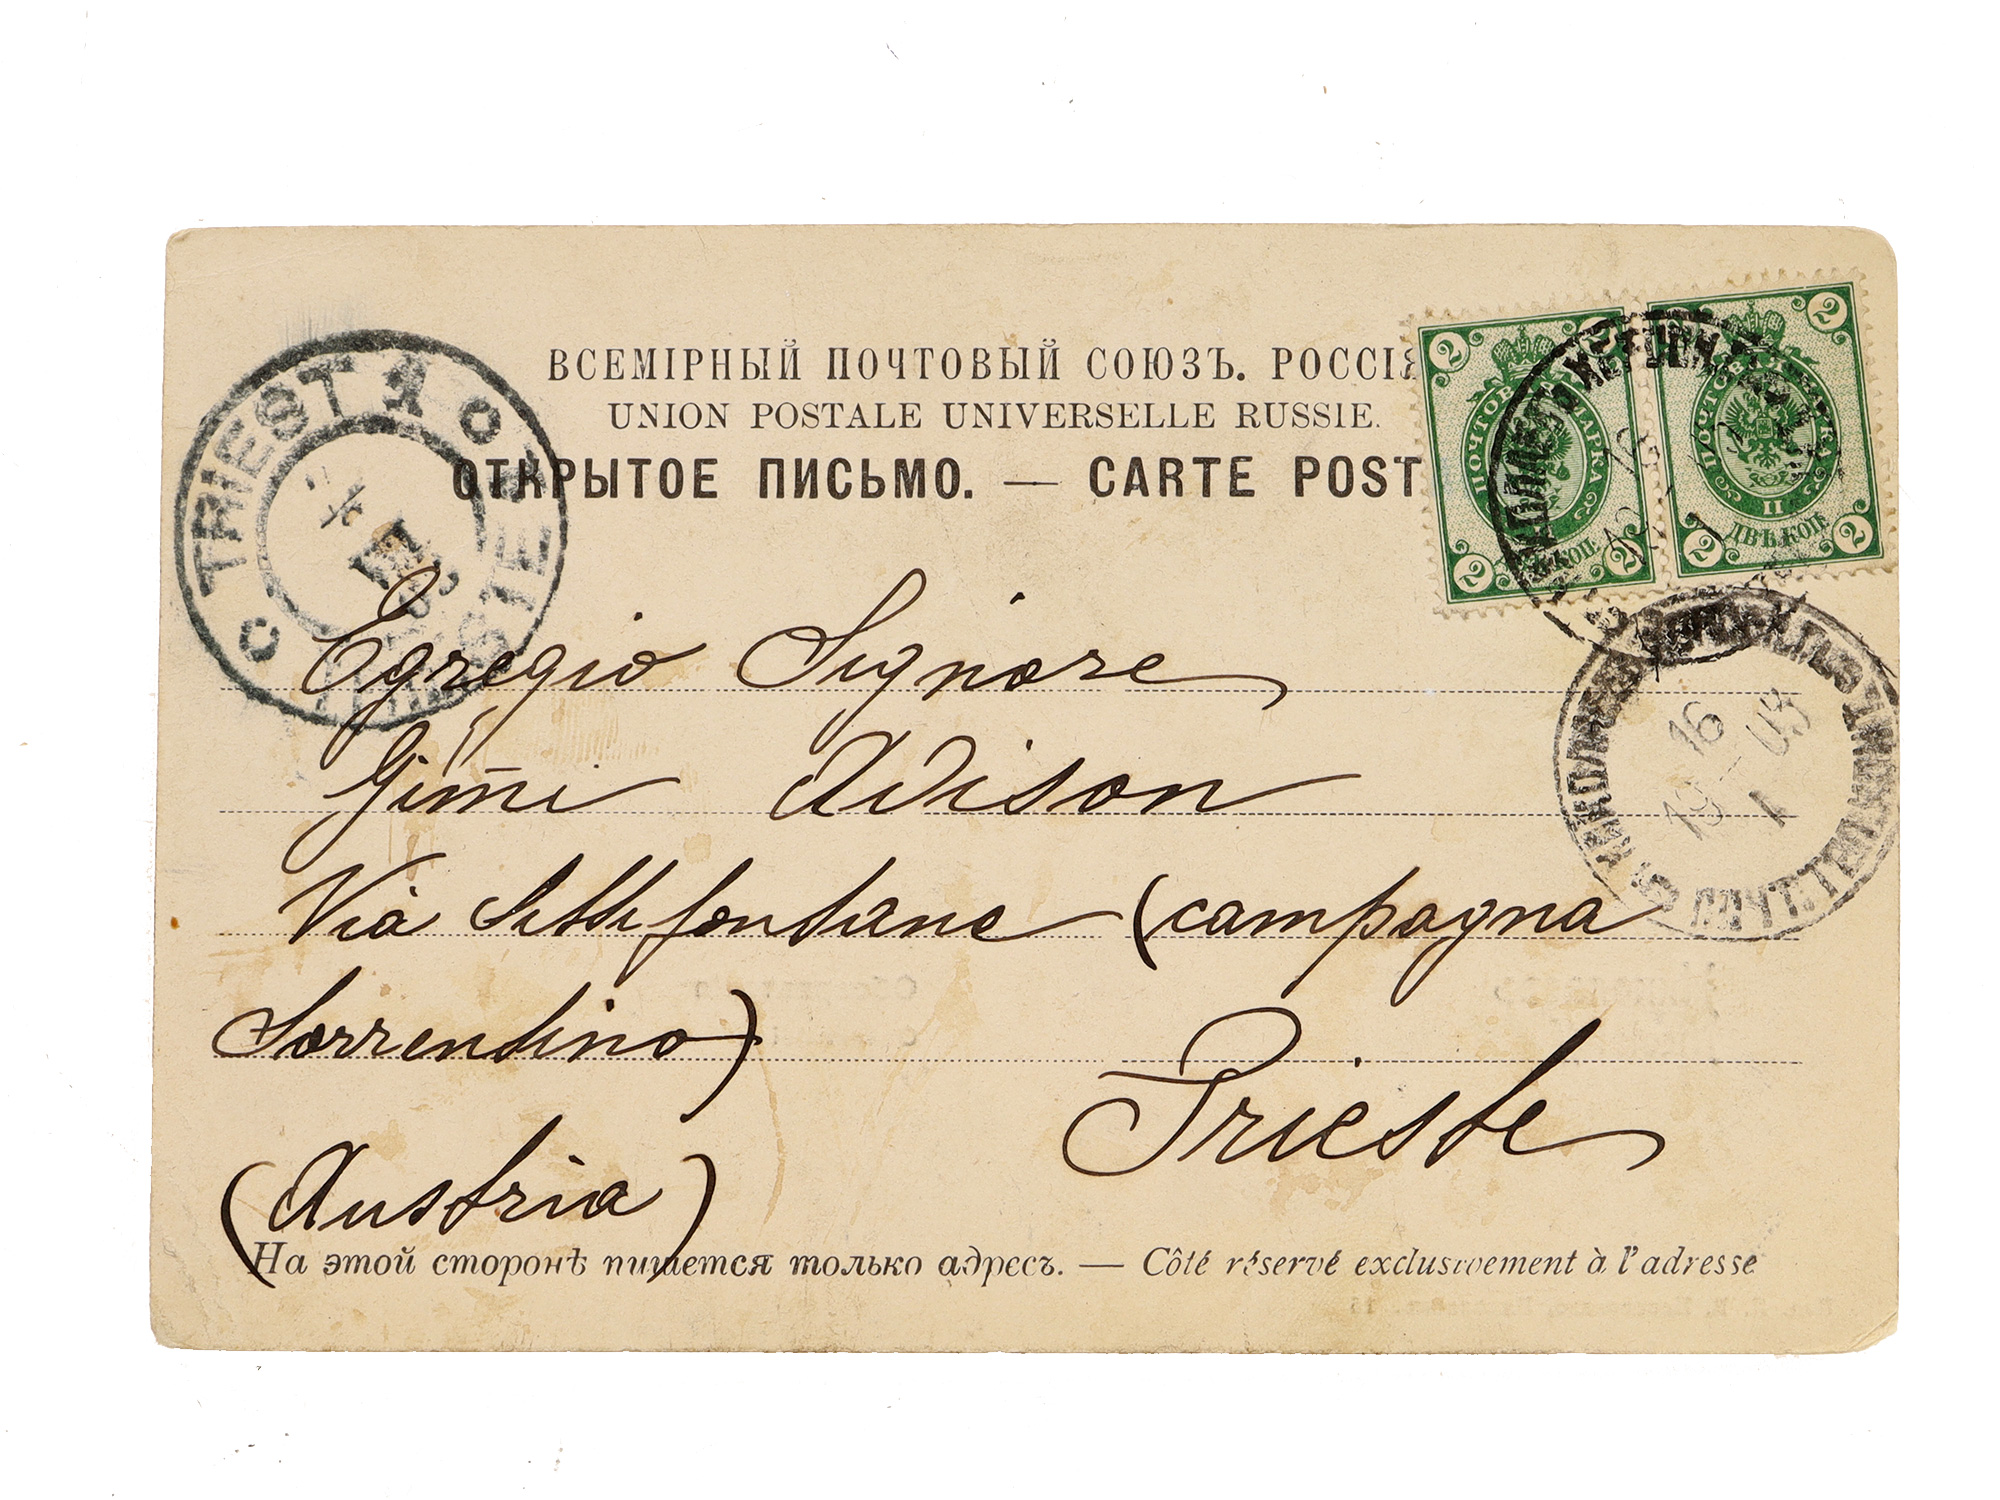 ВСЕМІРНЫЙ ПОЧТОВЫЙ СОЮЗЪ. РОССІЯ
UNION POSTALE UNIVERSELLE RUSSIE.
ОТКРЫТОЕ ПИСЬМО. — CARTE POST
TRIEST 1
2 2 2 2
ПОЧТОВАЯ МАРКА
КОП.
2 2 2 2
ПОЧТОВАЯ МАРКА
II
ДВѢ КОП.
16
19 - 03
1
Egregio Signore
Gimi Adison
Via Settefontane (campagna
Sorrentino)
Trieste
(Austria)
На этой сторонѣ пишется только адресъ. — Côté réservé exclusivement à l'adresse